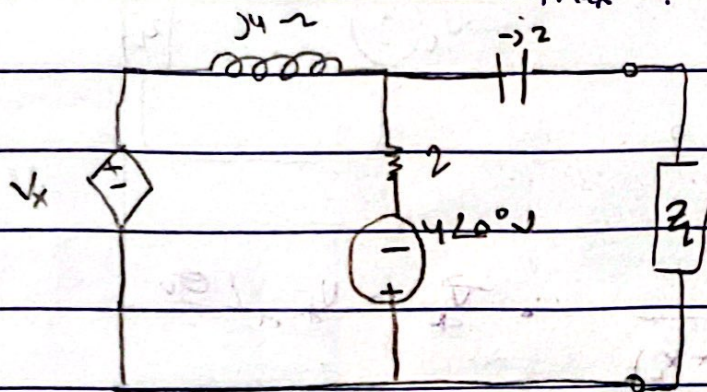 j4 Ω
-j2
+
-
Vx
2
4∠0° V
-
+
ZL